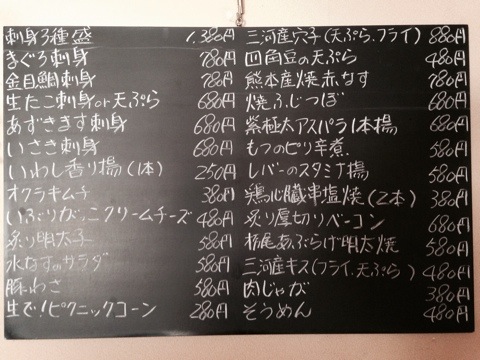 刺身3種盛 1,380円
まぐろ刺身 780円
金目鯛刺身 780円
生たこ刺身or天ぷら 680円
あずきます刺身 680円
いさき刺身 680円
いわし香り揚(1本) 250円
オクラキムチ 380円
いぶりがっこクリームチーズ 480円
炙り明太子 580円
水なすのサラダ 580円
豚わさ 580円
生で!ピクニックコーン 280円
三河産穴子(天ぷら.フライ) 880円
四角豆の天ぷら 480円
熊本産焼赤なす 780円
焼ふじつぼ 680円
紫極太アスパラ1本揚 680円
もつのピリ辛煮 580円
レバーのスタミナ揚 580円
鶏心臓串塩焼(2本) 380円
炙り厚切りベーコン 680円
栃尾あぶらげ明太焼 580円
三河産キス(フライ.天ぷら) 480円
肉じゃが 380円
そうめん 480円